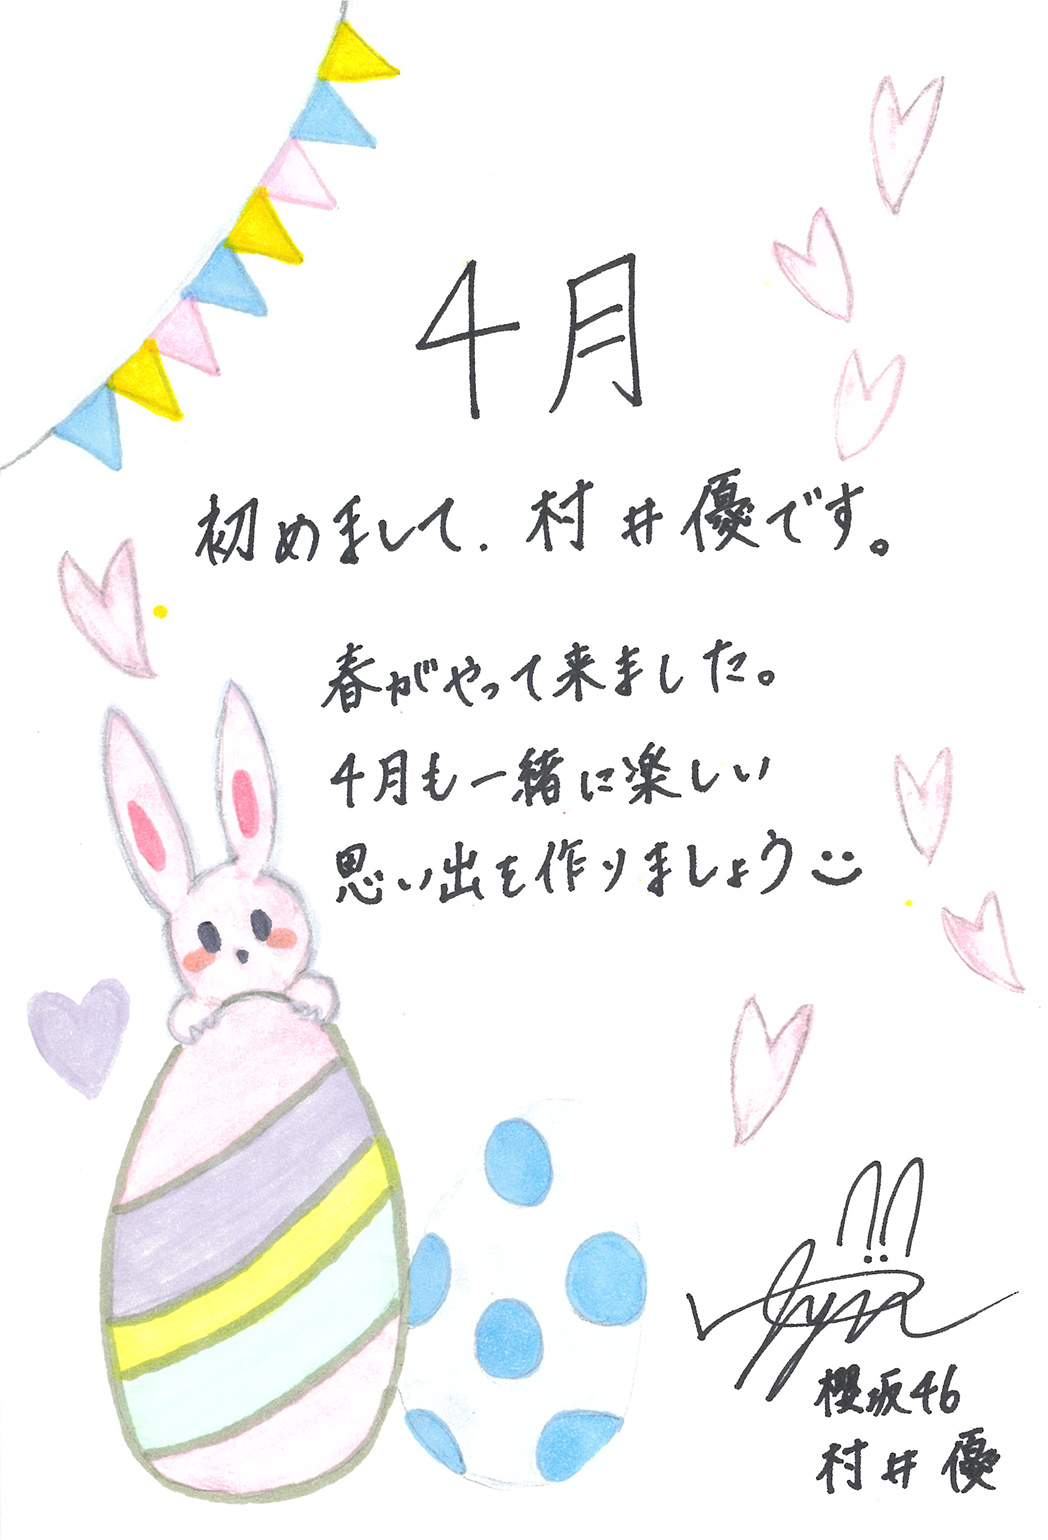 4月
初めまして、村井優です。
春がやって来ました。
4月も一緒に楽しい
思い出を作りましょう
櫻坂46
村井優